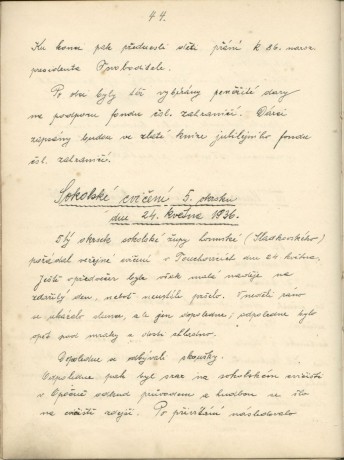 44.
Ku konci pak přednesli děti přání k 86. naroz.
presidenta Osvoboditele.
Po obci byly též vybírány peněžité dary
na podporu fondu čsl. zahraničí. Dárci
zapsány budou ve zlaté knize jubilejního fondu
čsl. zahraničí.
Sokolské cvičení 5. okrsku
dne 24. května 1936.
5tý okrsek sokolské župy (Sladkovského)
pořádal veřejné cvičení v dne 24 května.
Ještě předvečer byla však malá naděje na
zdařilý den, neboť pršelo. ráno
se ukázalo slunce, a to jen dopoledne; odpoledne bylo
opět pod mraky a dosti chladno.
Dopoledne se odbývali zkoušky.
Odpoledne pak byl sraz na sokolském cvičišti
v Opočně odkud průvodem s hudbou se šlo
na cvičiště zdejší. Po přivítání následovalo